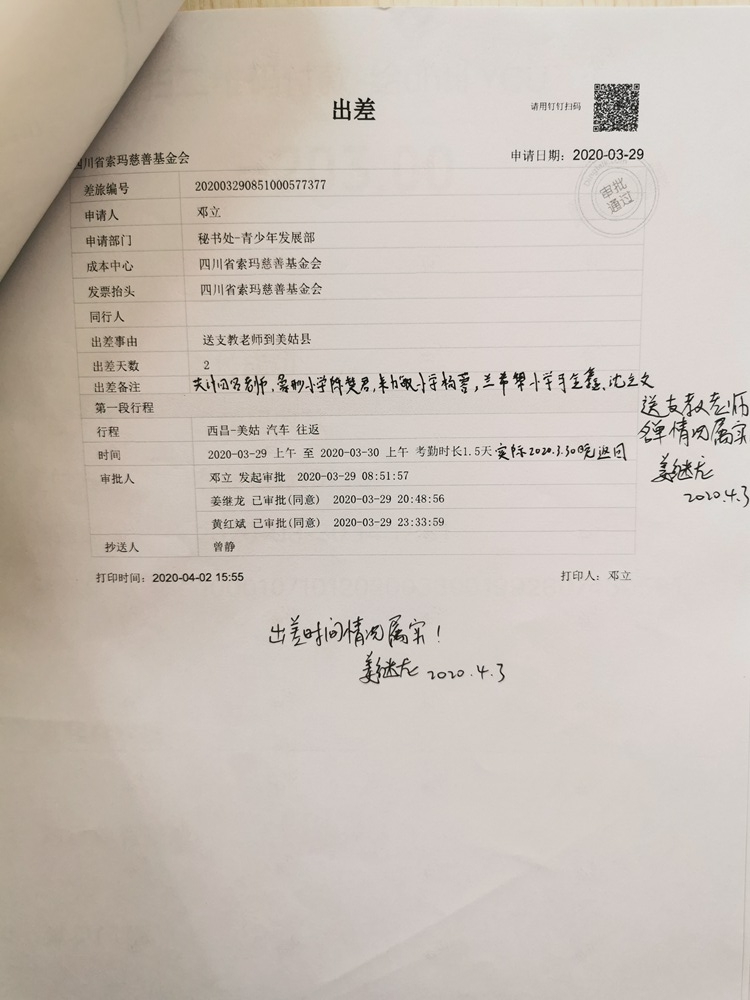 出差
请用钉钉扫码
四川省索玛慈善基金会
申请日期：2020-03-29
审批通过
差旅编号 202003290851000577377
申请人 邓立
申请部门 秘书处-青少年发展部
成本中心 四川省索玛慈善基金会
发票抬头 四川省索玛慈善基金会
同行人
出差事由 送支教老师到美姑县
出差天数 2
出差备注 共计四名老师
第一段行程
送支教老师
名单情况属实
姜继龙
2020.4.3
行程 西昌-美姑 汽车 往返
时间 2020-03-29 上午 至 2020-03-30 上午 考勤时长1.5天 实际2020.3.30晚返回
审批人 邓立 发起审批 2020-03-29 08:51:57
姜继龙 已审批(同意) 2020-03-29 20:48:56
黄红斌 已审批(同意) 2020-03-29 23:33:59
抄送人 曾静
打印时间：2020-04-02 15:55
打印人：邓立
出差时间情况属实！
姜继龙 2020.4.3